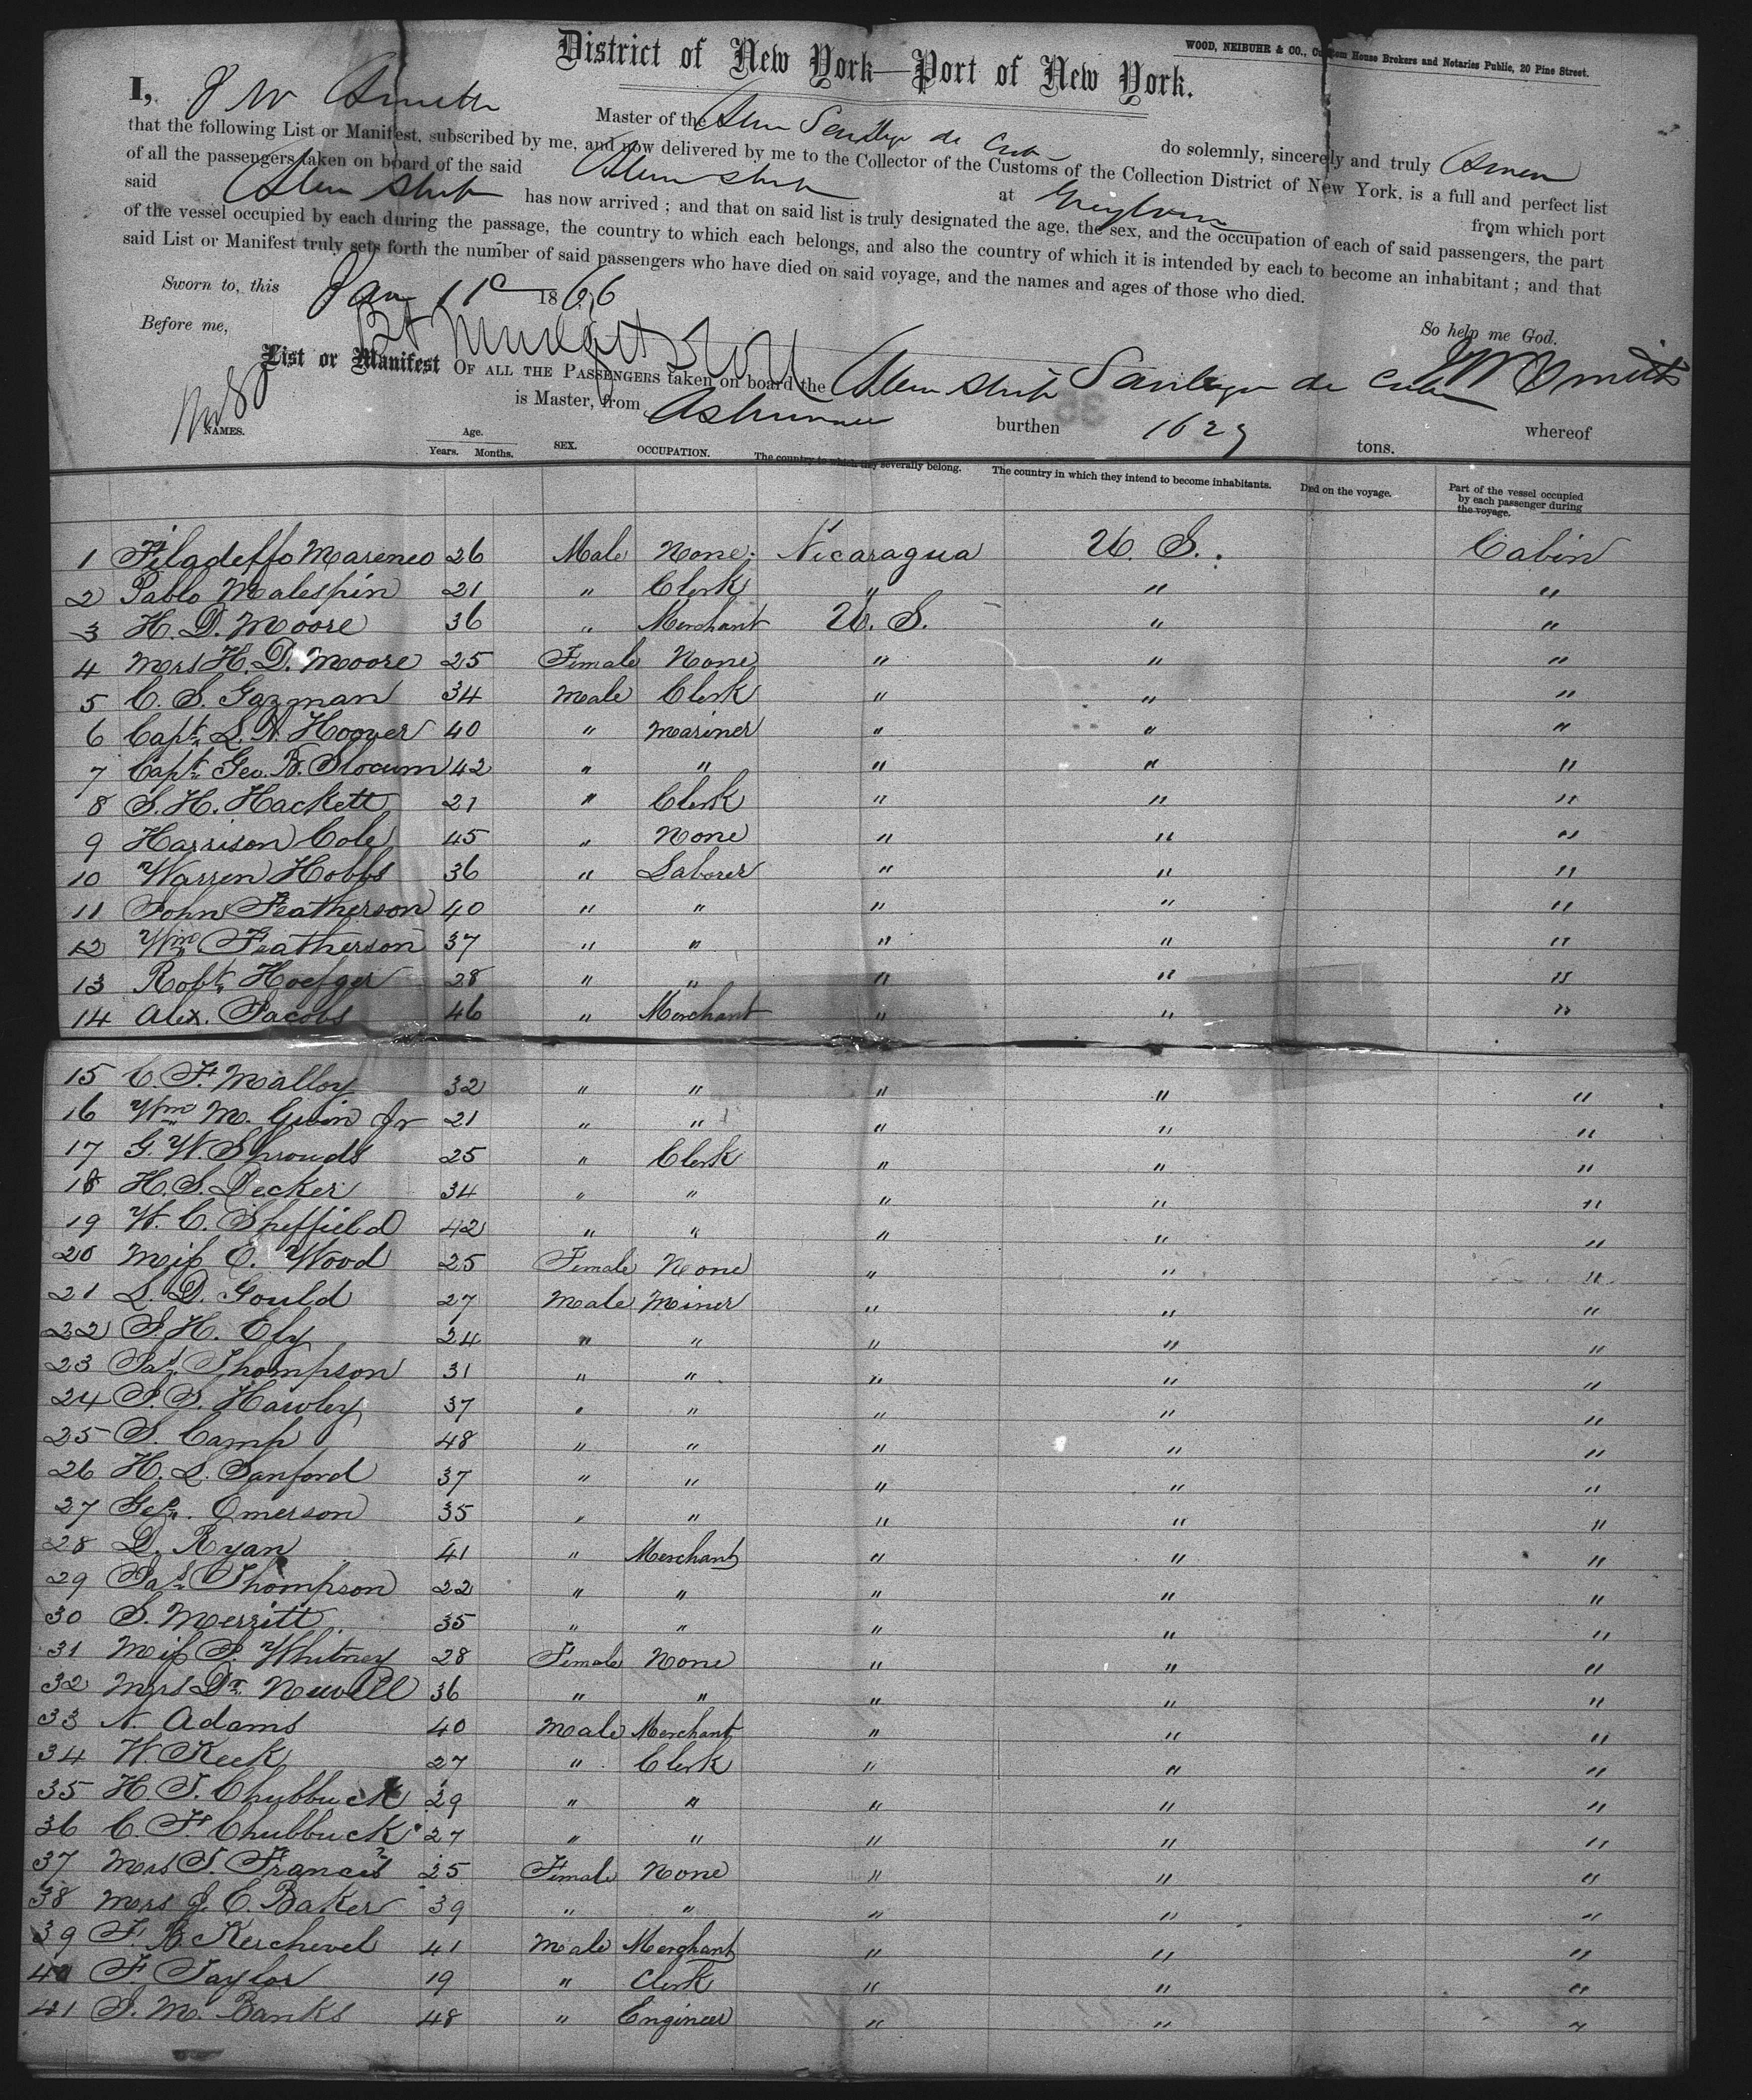 WOOD, NEIBUHR & CO., Custom House Brokers and Notaries Public, 20 Pine Street.
District of New York—Port of New York.
I, J W Smith Master of the Stmr Santiago de Cuba do solemnly, sincerely and truly Swear
that the following List or Manifest, subscribed by me, and now delivered by me to the Collector of the Customs of the Collection District of New York, is a full and perfect list
of all the passengers taken on board of the said Steam Ship at Greytown from which port
said Steam Ship has now arrived; and that on said list is truly designated the age, the sex, and the occupation of each of said passengers, the part
of the vessel occupied by each during the passage, the country to which each belongs, and also the country of which it is intended by each to become an inhabitant; and that
said List or Manifest truly sets forth the number of said passengers who have died on said voyage, and the names and ages of those who died.
Sworn to, this Jan 11 1866 So help me God.
Before me, Smith
List or Manifest OF ALL THE PASSENGERS taken on board the Steam Ship Santiago de Cuba whereof
is Master, from burthen 1629 tons.
NAMES. Age. Years. Months. SEX. OCCUPATION. The country to which they severally belong. The country in which they intend to become inhabitants. Died on the voyage. Part of the vessel occupied by each passenger during the voyage.
1 Filadelfo Mareneo 26 Male None. Nicaragua U. S. Cabin
2 Pablo Malespin 21 " Clerk " " "
3 H. D. Moore 36 " Merchant U. S. " "
4 Mrs H. D. Moore 25 Female None " " "
5 C. S. Gazman 34 Male Clerk " " "
6 Capt. L. N. Hoover 40 " Mariner " " "
7 Capt. Geo. B. Slocum 42 " " " " "
8 S. H. Hackett 21 " Clerk " " "
9 Harrison Cole 45 " None " " "
10 Warren Hobbs 36 " Laborer " " "
11 John Featherson 40 " " " " "
12 Wm. Featherson 37 " " " " "
13 Robt. Hoefger 28 " " " " "
14 Alex. Jacobs 46 " Merchant " " "
15 C. F. Malloy 32 " " " " "
16 Wm. M. Gwin Jr 21 " " " " "
17 G. W. Shrouds 25 " Clerk " " "
18 H. S. Decker 34 " " " " "
19 W. C. Sheffield 42 " " " " "
20 Miss E. Wood 25 Female None " " "
21 L. D. Gould 27 Male Miner " " "
22 J. H. Ely 24 " " " " "
23 Jas. Thompson 31 " " " " "
24 J. S. Hawley 37 " " " " "
25 S. Camp 48 " " " " "
26 H. L. Sanford 37 " " " " "
27 Geo. Emerson 35 " " " " "
28 D. Ryan 41 " Merchant " " "
29 Jas. Thompson 22 " " " " "
30 S. Merritt 35 " " " " "
31 Miss J. Whitney 28 Female None " " "
32 Mrs Dr. Newell 36 " " " " "
33 N. Adams 40 Male Merchant " " "
34 W. Keck 27 " Clerk " " "
35 H. S. Chubbuck 29 " " " " "
36 C. F. Chubbuck 27 " " " " "
37 Mrs S. Francis 25 Female None " " "
38 Mrs J. E. Baker 39 " " " " "
39 F. B. Kerchevel 41 Male Merchant " " "
40 F. Taylor 19 " Clerk " " "
41 J. M. Banks 48 " Engineer " " "